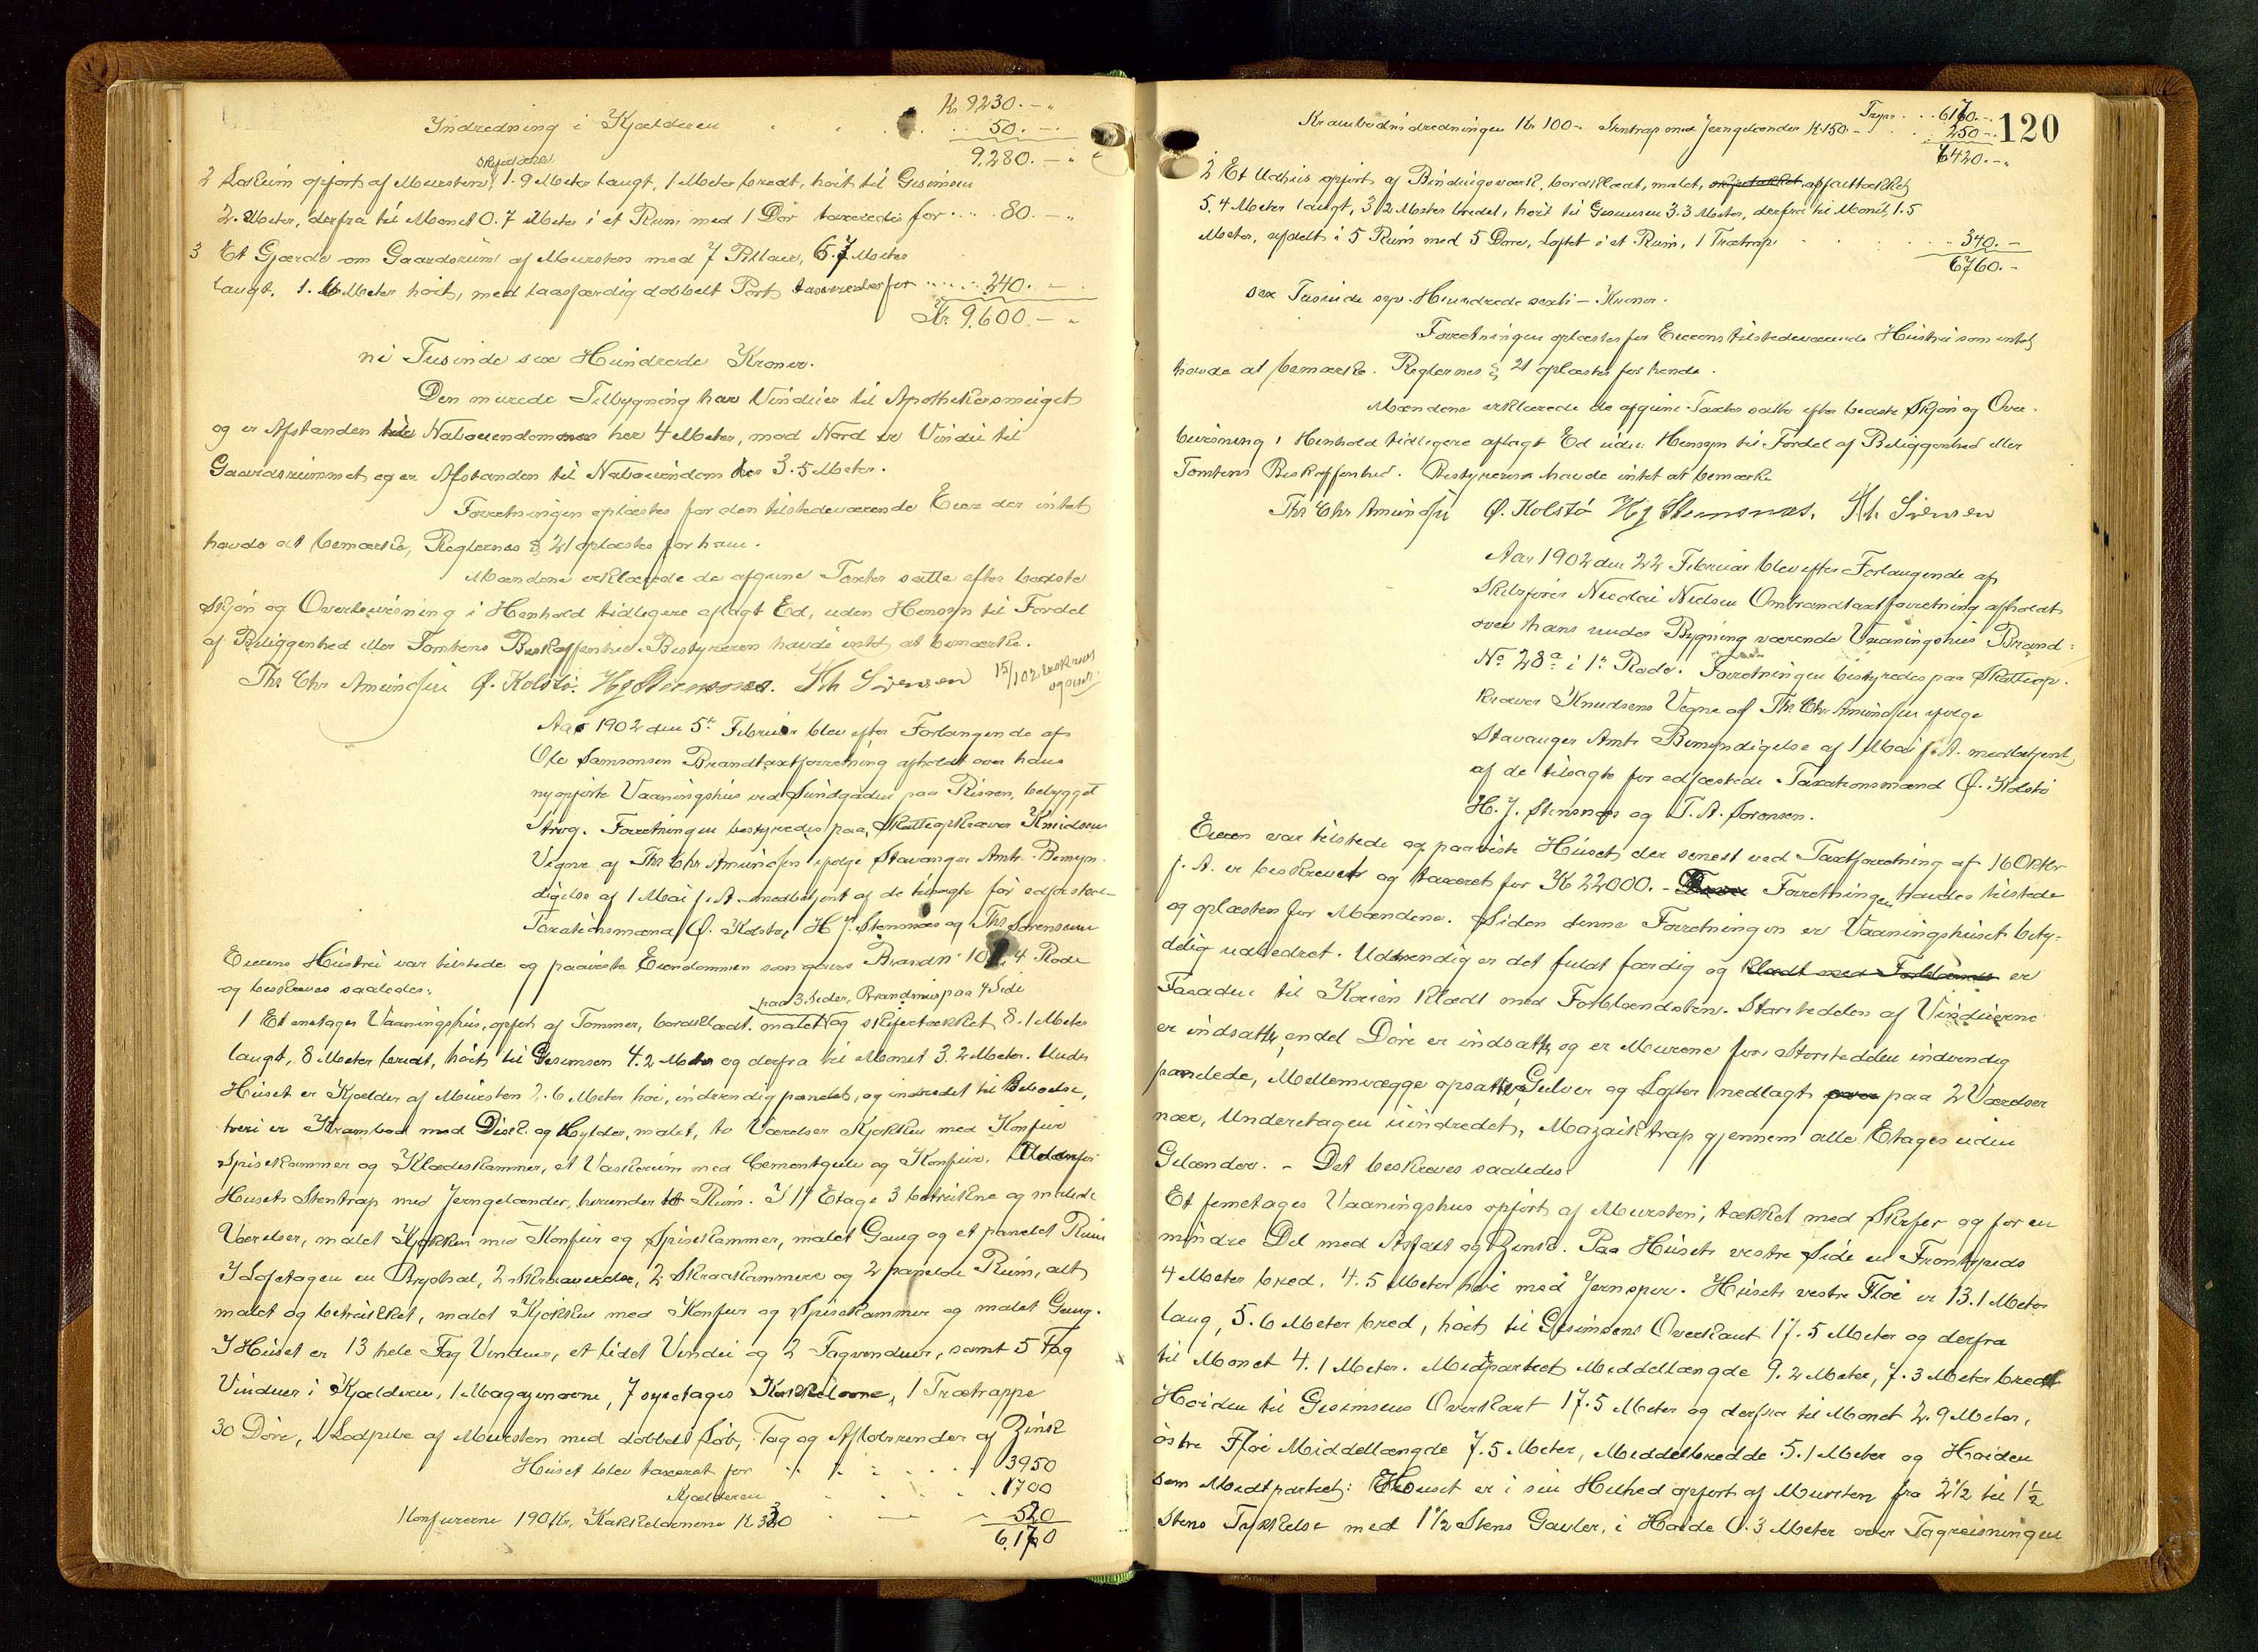 Kr 9230.-"
Indredning i Kjælderen . . . . 50.-
9,280.-"
2 Lokum opført af Mursten, skifertækket 1.9 Meter langt, 1 Meter bredt, høit til Gesimsen
2. Meter, derfra til Mønet 0.7 Meter i et Rum med 1 Dør taxeredes for .... 80.-"
3 Et Gjærde om Gaardsrum af Mursten med 7 Pillar, 6.7 Meter
langt. 1.6 Meter høit, med laasfærdig dobbelt Port taxeredes for ..... 240.-
Kr. 9,600.-"
ni Tusinde sex Hundrede Kroner.
Den murede Tilbygning har Vinduer til Apothekersmuget
og er Afstanden til Naboeiendommen her 4 Meter, mod Nord er Vindu til
Gaardsrummet og er Afstanden til Naboeiendom her 3.5 Meter.
Forretningen oplæstes for den tilstedeværende Eier der intet
havde at bemærke, Reglernes § 21 oplæstes for ham.
Mændene erklærede de afgivne Taxter satte efter bedste
Skjøn og Overbevisning i Henhold tidligere aflagt Ed, uden Hensyn til Fordel
af Beliggenhed eller Tomtens Beskaffenhed. Bestyreren havde intet at bemærke.
Ths Chr Amundsen Ø. Kolstø. H J Stensnæs. Th Sörensen 15/1 02 beskrevet
Aar 1902 den 5te Februar blev efter Forlangende af
Ole Samsonsen Brandtaxtforretning afholdt over hans
nyopførte Vaaningshus ved Sundgaden paa Risøen, bebygget
Strøg. Forretningen bestyredes paa Skatteopkræver Knudsens
Vegne af Ths Chr Amundsen ifølge Stavanger Amts Bemyn-
digelse af 1 Mai f. A. medbetjent af de tilsagte før edfæstede
Taxationsmænd Ø. Kolstø, H J. Stensnæs og Ths Sørensen
Eierens Hustru var tilstede og paaviste Eiendommen som gaves Brandn. 10 4 Rode
og beskreves saaledes:
paa 3 Sider, Brandmur paa 4 Side
1 Et enetages Vaaningshus, opført af Tømmer, bordklædt, malet og skifertækket 8.1 Meter
langt, 8 Meter bredt, høit til Gesimsen 4.2 Meter og derfra til Mønet 3.2 Meter. Under
Huset er Kjælder af Mursten 2.6 Meter høi, indvendig panelet, og indredet til Beboelse,
hvori er Krambod med Disk og Hylder, malet, to Værelser Kjøkken med Komfur
Spisekammer og Klædeskammer, et Vaskerum med Cementgulv og Komfur. Udenfor
Huset Stentrap med Jerngelænder, herunder to Rum. I 1ste Etage 3 betrukne og malede
Værelser, malet Kjøkken med Komfur og Spisekammer, malet Gang og et panelet Rum
I Loftetagen en Brephal, 2 Skraaværelser, 2 Skraakammere og 2 panelte Rum, alt
malet og betrukket, malet Kjøkken med Komfur og Spisekammer og malet Gang.
I Huset er 13 hele Fag Vinduer, et lidet Vindu og 2 Tagvinduer, samt 5 Fag
Vinduer i Kjælderen, 1 Magazinovne, 7 syvetages Kakkelovne, 1 Trætrappe
30 Døre, 1 Lodpibe af Mursten med dobbelt Løb, Tag og Afløbsrender af Zink
Huset blev taxeret for . . . . . 3950
Kjælderen . . . . 1700
Komfurerne 190 Kr, Kakkelovnene Kr 330 . — 520
6,170
120
Trspr . . . 6170.-
Krambodindredningen Kr 100.- Stentrap med Jerngelænder K 150.- . . 250-.
6420.-"
2 Et Udhus opført af Bindingsværk, bordklædt, malet, skifertækket asfalttækket
5,4 Meter langt, 3,2 Meter bredt, høit til Gesimsen 3.3 Meter, derfra til Mønet 1.5
Meter, afdelt i 5 Rum med 5 Døre, Loftet i et Rum, 1 Trætrap . . . . 340.-
6760.-
sex Tusinde syv Hundrede sexti - Kroner.
Forretningen oplæstes for Eierens tilstedeværende Hustru som intet
havde at bemærke. Reglernes § 21 oplæstes for hende.
Mændene erklærede de afgivne Taxter satte efter bedste Skjøn og Over-
bevisning i Henhold tidligere aflagt Ed uden Hensyn til Fordel af Beliggenhed eller
Tomtens Beskaffenhed. Bestyreren havde intet at bemærke
Ths Chr Amundsen Ø. Kolstø H J Stensnæs. Th Sörensen
Aar 1902 den 22 Februar blev efter Forlangende af
Skibsfører Nicolai Nielsen Ombrandtaxtforretning afholdt
over hans under Bygning værende Vaaningshus Brand-
No 28a i 1ste Rode. Forretningen bestyredes paa Skatteop-
kræver Knudsens Vegne af Ths Chr Amundsen ifølge
Stavanger Amts Bemyndigelse af 1 Mai f. A. medbetjent
af de tilsagte før edfæstede Taxationsmænd Ø. Kolstø
H. J. Stensnæs og T. A. Sørensen.
Eieren var tilstede og paaviste Huset der senest ved Taxtforretning af 16 Oktbr
f. A. er beskrevet og taxeret for Kr 22000.- Forretningen havdes tilstede
og oplæstes for Mændene. Siden denne Forretningen er Vaaningshuset bety-
delig udbedret. Udvendig er det fuldt færdig og klædt med Forblænds er
Fasaden til Kaien klædt med Forblændsten. Størstedelen af Vinduerne
er indsatte, endel Døre er indsatte, og er Murene for Størstedelen indvendig
panelede, Mellemvægge opsatte, Gulver og Lofter nedlagt over paa 2 Værelser
nær, Underetagen uindredet, Mazaiktrap gjennem alle Etages uden
Gelænder. - Det beskreves saaledes:
Et femetages Vaaningshus opført af Mursten; tækket med Skifer og for en
mindre Del med Asfalt og Zink. Paa Husets vestre Side en Frontspids
4 Meter bred, 4.5 Meter høi med Jernspir. Husets vestre Fløi er 13.1 Meter
lang, 5.6 Meter bred, høit til Gesimsens Overkant 17.5 Meter og derfra
til Mønet 4.1 Meter. Midtpartiet Middellængde 9.2 Meter, 7.3 Meter bredt
Høiden til Gesimsens Overkant 17.5 Meter og derfra til Mønet 2.9 Meter,
østre Fløi Middellængde 7.5 Meter, Middelbredde 5.1 Meter og Høiden
som Midtpartiet: Huset er i sin Helhed opført af Mursten fra 2 1/2 til 1 1/2
Stens Tykkelse med 1 1/2 Stens Gavler, i Høide 0.3 Meter over Tagreisningen